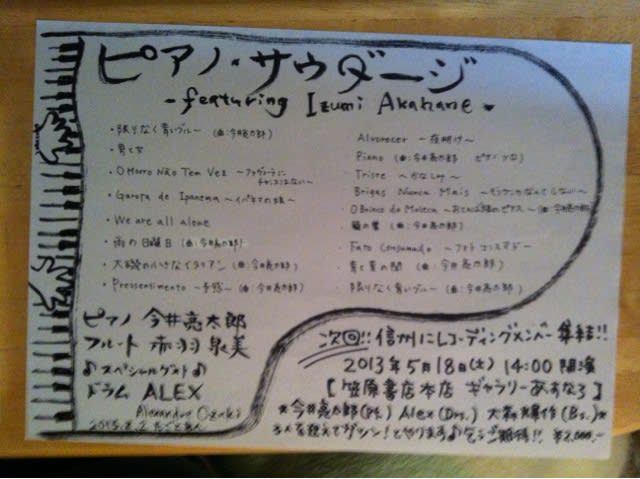 ピアノ・サウダージ
～featuring Izumi Akahane～
・限りなく青いブルー (曲:今井亮太郎)
・O Morro Não Tem Vez
・Garota de Ipanema ～イパネマの娘～
・We are all alone
・雨の日曜日 (曲:今井亮太郎)
・大船の小さなイタリアン (曲:今井亮太郎)
・Pressentimento ～予感～ (曲:今井亮太郎)
Alvorecer ～夜明け～
Piano (曲:今井亮太郎 ピアノソロ)
Triste ～かなしみ～
Brigas Nunca Mais ～もうケンカなんてしない～
O Brinco da Moleca ～おてんば娘のピアス～ (曲:今井亮太郎)
(曲:今井亮太郎)
Fato Consumado
(曲:今井亮太郎)
限りなく青いブルー (曲:今井亮太郎)
ピアノ 今井亮太郎
フルート 赤羽泉美
♪スペシャルゲスト♪
ドラム ALEX
Alexandre Ozaki
次回!! 信州にレコーディングメンバー集結!!
2013年5月18日(土) 14:00 開演
【笠原書店本店 ギャラリーあすなろ】
★今井亮太郎(Pf.) Alex(Drs.) 大森輝作(Bs.)★
¥2,000,-